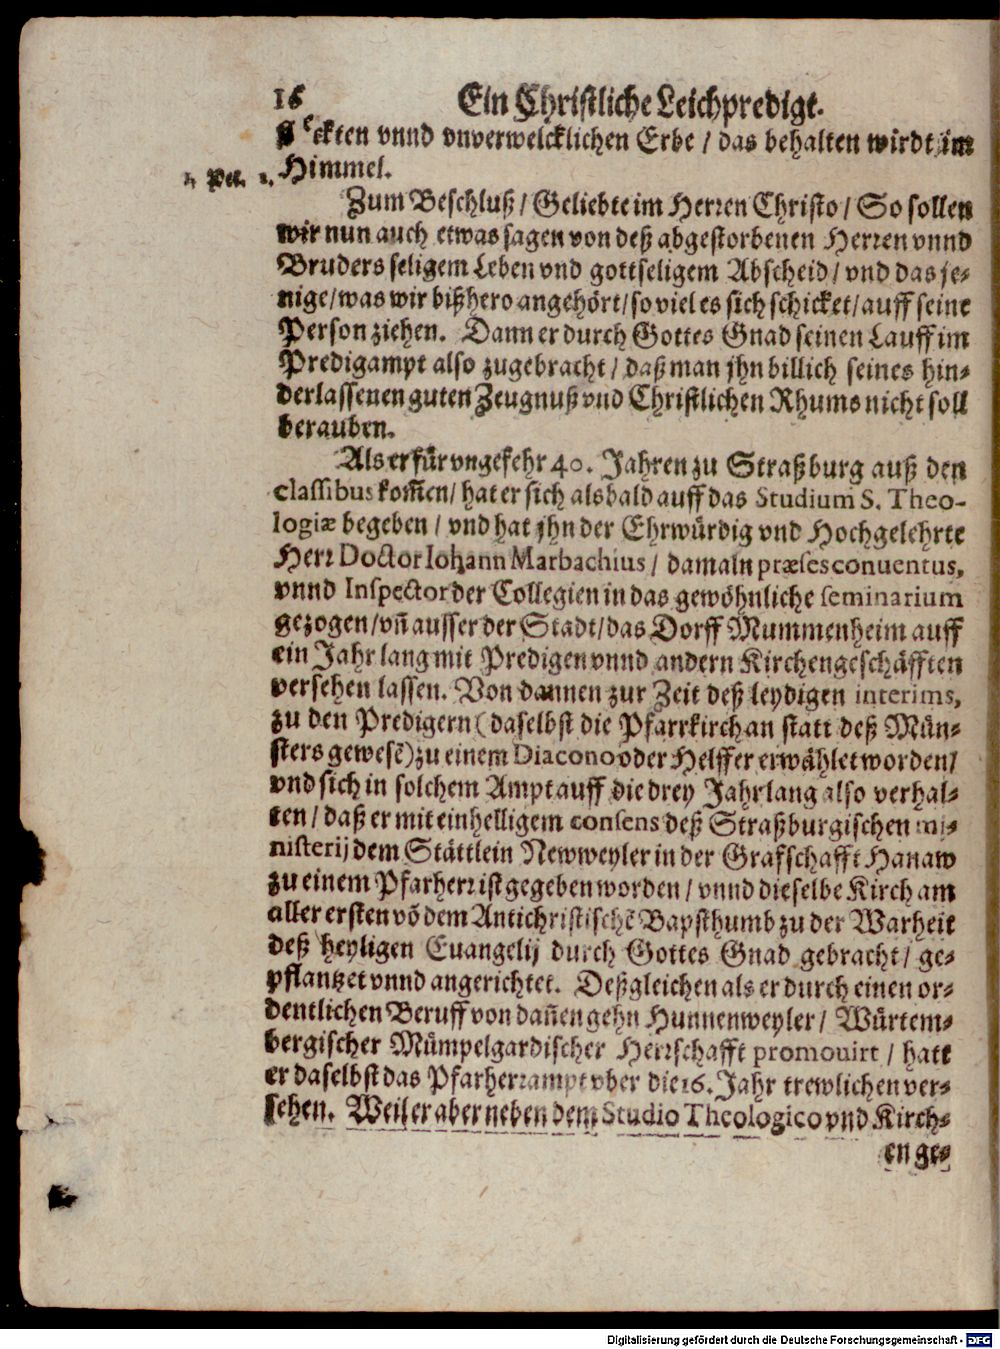 16 Ein Christliche Leichpredigt.
fleckten vnnd vnverwelcklichen Erbe / das behalten wirdt im
Himmel.
1. Pet. 1.
Zum Beschluß / Geliebte im Herren Christo / So sollen
wir nun auch etwas sagen von deß abgestorbenen Herren vnnd
Bruders seligem Leben vnd gottseligem Abscheid / vnd das je-
nige / was wir bißhero angehört / so viel es sich schicket / auff seine
Person ziehen. Dann er durch Gottes Gnad seinen Lauff im
Predigampt also zugebracht / daß man jhn billich seines hin-
derlassenen guten Zeugnuß vnd Christlichen Rhums nicht soll
berauben.
Als er für vngefehr 40. Jahren zu Straßburg auß den
classibus kom̃en / hat er sich alsbald auff das Studium S. Theo-
logiæ begeben / vnd hat jhn der Ehrwürdig vnd Hochgelehrte
Herr Doctor Iohann Marbachius / damaln præses conuentus,
vnnd Inspector der Collegien in das gewöhnliche seminarium
gezogen / vñ ausser der Stadt / das Dorff Mummenheim auff
ein Jahr lang mit Predigen vnnd andern Kirchengeschäfften
versehen lassen. Von dannen zur Zeit deß leydigen interims,
zu den Predigern (daselbst die Pfarrkirch an statt deß Mün-
sters gewesẽ) zu einem Diacono oder Helffer erwählet worden /
vnd sich in solchem Ampt auff die drey Jahr lang also verhal-
ten / daß er mit einhelligem consens deß Straßburgischen mi-
nisterij dem Stättlein Newweyler in der Grafschafft Hanaw
zu einem Pfarherr ist gegeben worden / vnnd dieselbe Kirch am
aller ersten võ dem Antichristischẽ Bapsthumb zu der Warheit
deß heyligen Euangelij durch Gottes Gnad gebracht / ge-
pflantzet vnnd angerichtet. Deßgleichen als er durch einen or-
dentlichen Beruff von dañen gehn Hunnenweyler / Würtem-
bergischer Mümpelgardischer Herrschafft promouirt / hatt
er daselbst das Pfarherrampt vber die 16. Jahr trewlichen ver-
sehen. Weil er aber neben dem Studio Theologico vnd Kirch-
en ge-
Digitalisierung gefördert durch die Deutsche Forschungsgemeinschaft - DFG